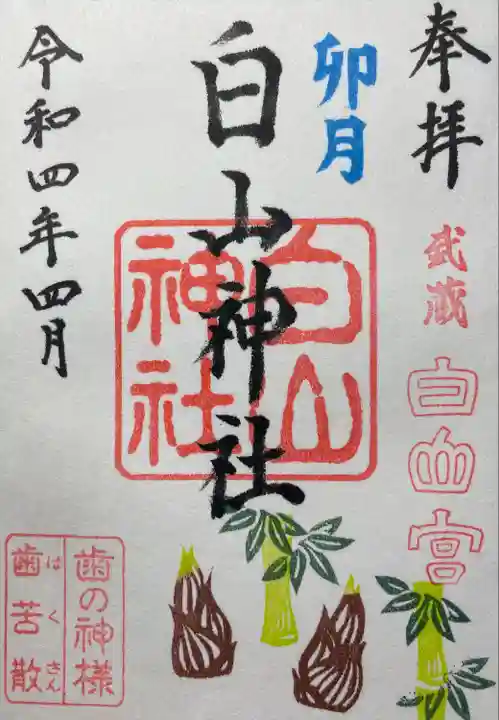 奉拝
武蔵
白山宮
卯月
白山神社
白山
神社
令和四年四月
歯の神様
歯苦散
はくさん